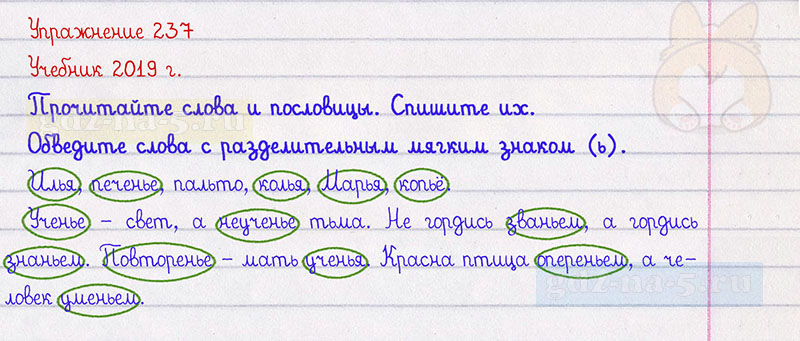 Упражнение 237
Учебник 2019 г.
Прочитайте слова и пословицы. Спишите их.
Обведите слова с разделительным мягким знаком (ь).
Илья, печенье, пальто, колья, Марья, копьё.
Ученье – свет, а неученье тьма. Не гордись званьем, а гордись
знаньем. Повторенье – мать ученья. Красна птица опереньем, а че-
ловек уменьем.
gdz-na-5.ru
gdz-na-5.ru